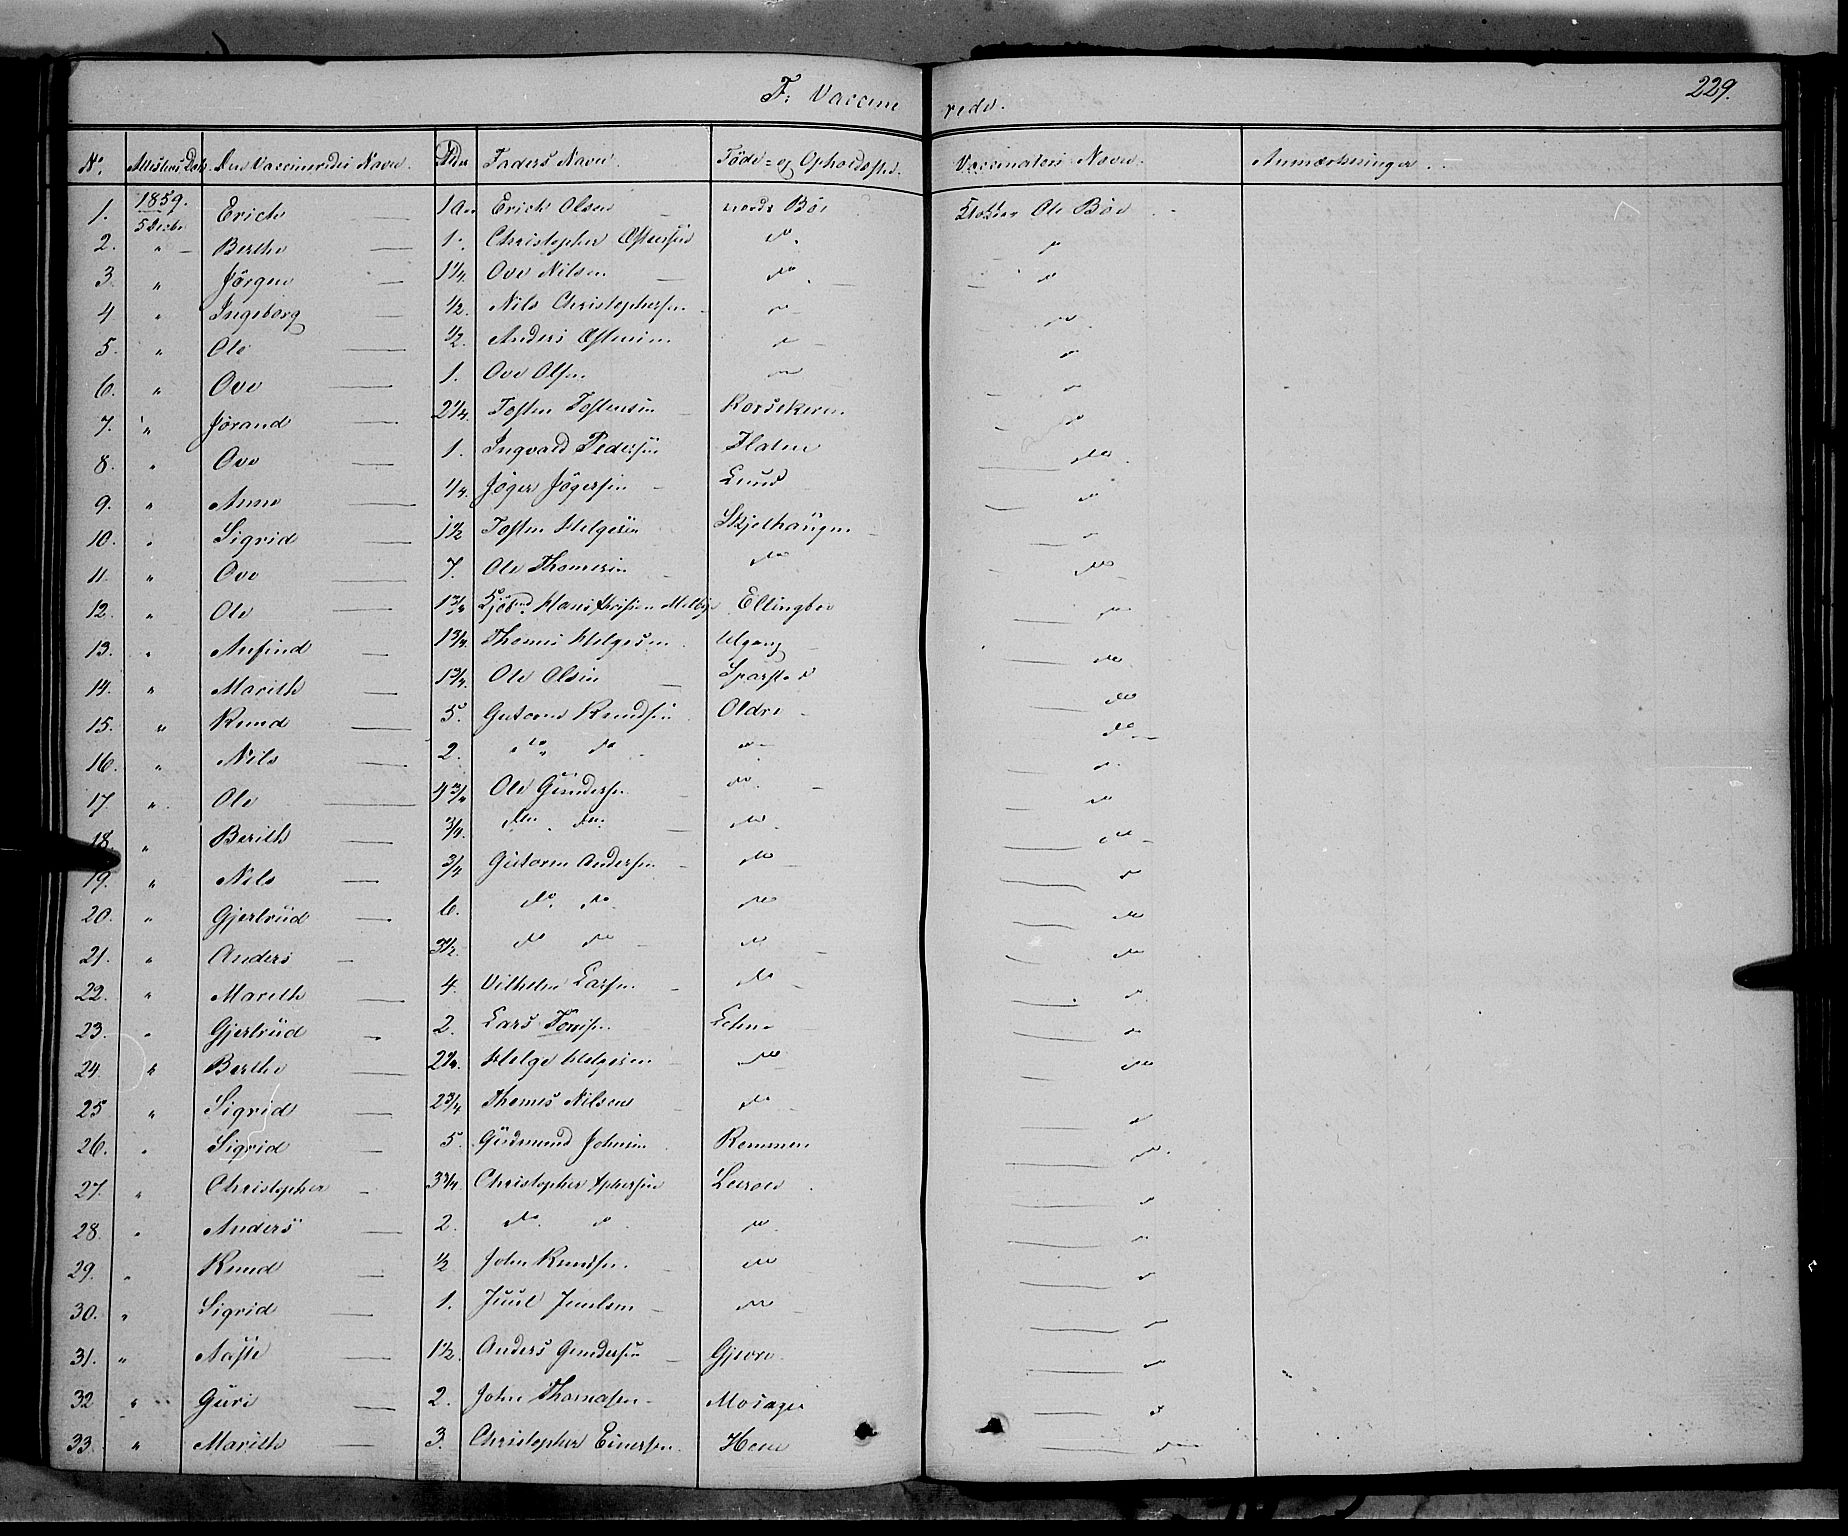 F. Vaccinerede.
229.
No. Attestens Dato. Den Vaccineredes Navn. Alder Faders Navn. Føde- og Opholdssted. Vaccinateurs Navn. Anmærkninger.
1859.
1. 5 Decbr. Erich 1 Erich Olsen Bøe Klokker Ole Bøe
2. " Berthe 1. Christopher do. do
3. " Jörgen 1¼ Ove Nilsen do do
4. " Ingeborg ½. Nils Christophersen do do
5. " Ole ½. Anders do do
6. " Ove 1. Ove Olsen do do
7. " Jörand 2¼. Tosten Tostensen do
8. " Ove 1. Ingvald Pedersen Flaten do
9. " Anne ¼. Jöger Jögersen Lund do
10. " Sigrid 1½ Tosten Helgesen Skjelhaugen do
11. " Ove 7. Ole Thomesen do do
12. " Ole 1¾ Ellingboe do
13. " Anfind 1¾. Thomes Helgesen do
14. " Marith 1¾. Ole Olsen do
15. " Knud 5. Gutorm Knudsen Oldre do
16. " Nils 2. do do do do
17. " Ole 4¾ Ole Gundersen do do
18. " Berith ¾. do do do do
19. " Nils ¾ Gutorm Andersen do do
20. " Gjertrud 6. do do do do
21. " Anders 3½. do do do do
22. " Marith 4. Vilhelm Larsen do do
23. " Gjertrud 2. Lars do
24. " Berthe 2¼. Helge Helgesen do do
25. " Sigrid 2¾ Thomes Nilsen do do
26. " Sigrid 5. Gudmund Johnsen Remmen do
27. " Christopher 3¾. Christopher do
28. " Anders 2. do do do do
29. " Knud ½ John Knudsen do do
30. " Sigrid 1. Juul Juulsen do do
31. " 1½. Anders Gundersen do
32 " Guri 2. John Thomasen do
33. " Marith 3. Christopher Einersen do